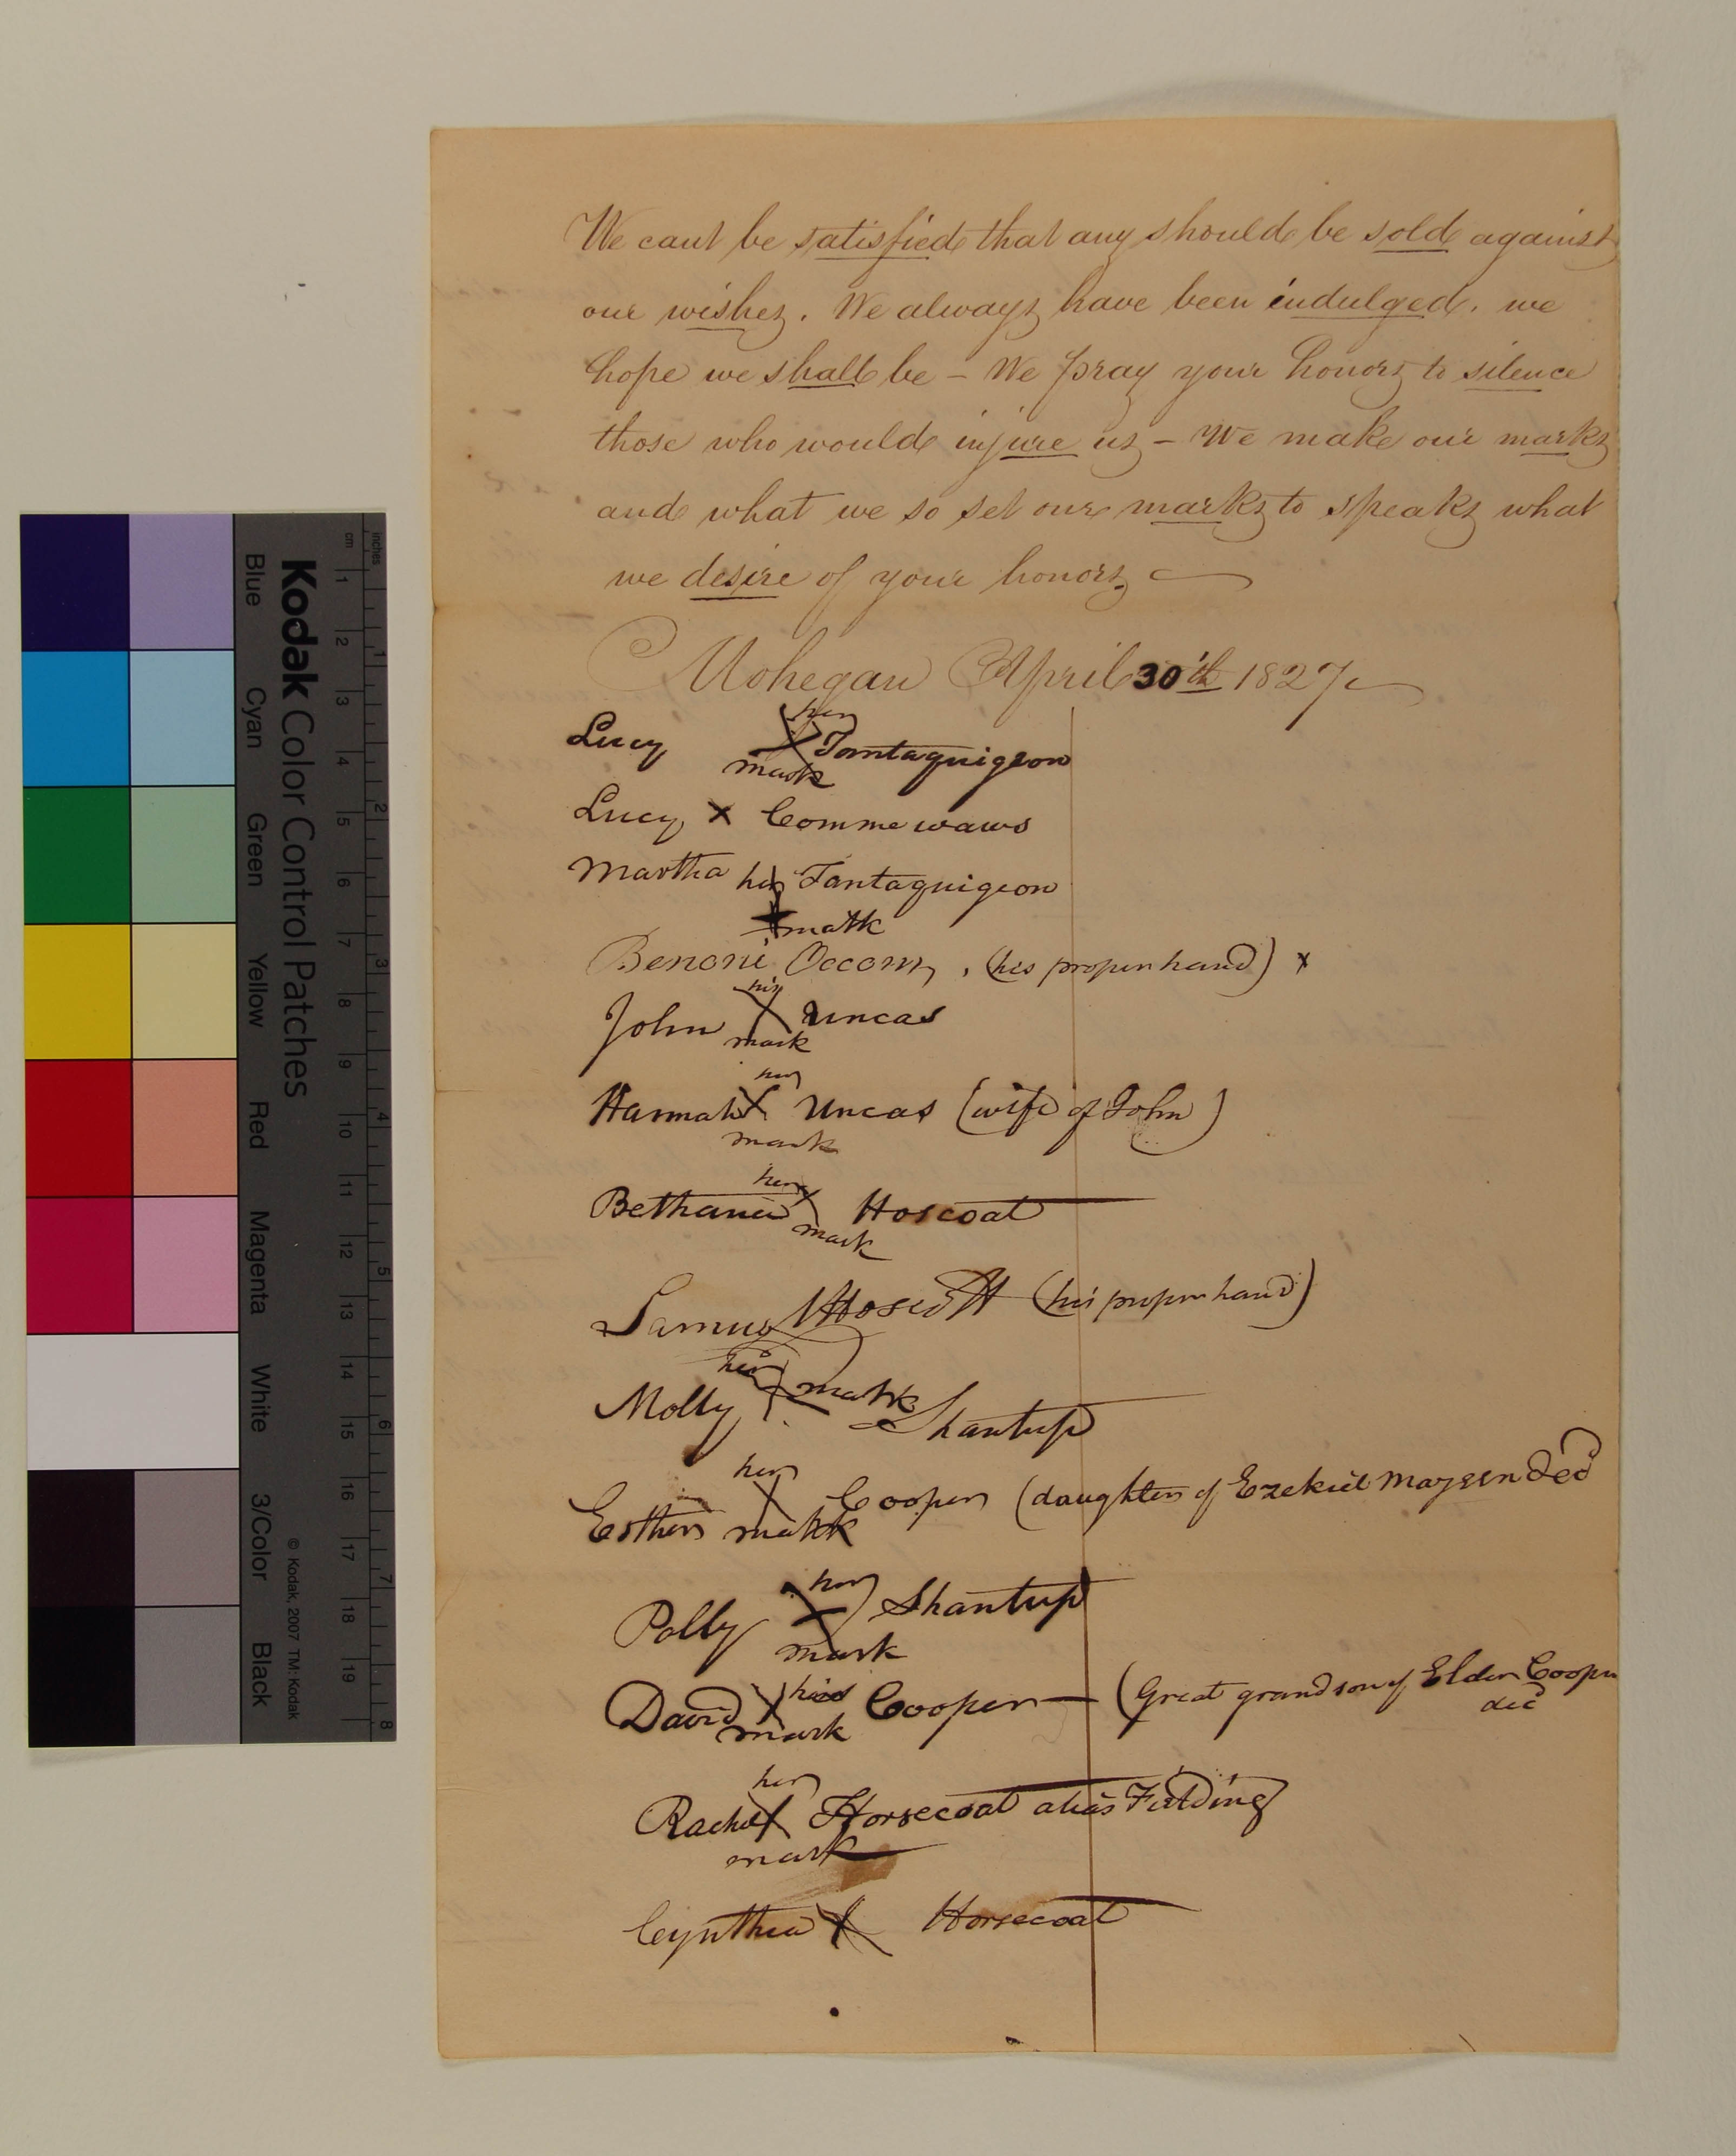 We cant be satisfied that any should be sold against
our wishes. We always have been indulged. we
hope we shall be – We pray your honors to silence
those who would injure us – We make our marks
and what we so set our marks to speaks what
we desire of your honors
Mohegan April 30th 1827
her
Lucy X Tantaquigeon
mark
Lucy X Commewaws
Martha her Tantaquigeon
mark
Benoni Occom, (his proper hand) x
his
John X Uncas
mark
her
Hannah X Uncas (wife of John)
mark
her
Bethania X Hoscoat
mark
Samuel Hoscott (his proper hand)
her mark
Molly X Shantup
her
Esther X Cooper (daughter of Ezekiel Mazeen decd
mark
her
Polly X Shantup
mark
his
David X Cooper — (Great grandson of Elder Cooper
mark decd
her
Rachel X Horsecoat alias Fielding
mark
Cynthia X Horsecoat
inches
cm
1 2 3 4 5 6 7 8
1 2 3 4 5 6 7 8 9 10 11 12 13 14 15 16 17 18 19
Kodak Color Control Patches
© Kodak, 2007 TM: Kodak
Blue Cyan Green Yellow Red Magenta White 3/Color Black